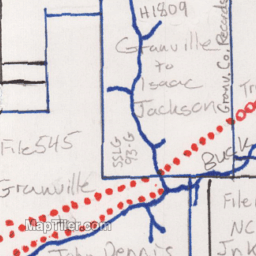 H1809
Granville
to
Isaac
Jackson
Granv. Co. Records
SSLG
File 545
Buck
Granville
File
NC
John Dennis
MapTiler.com